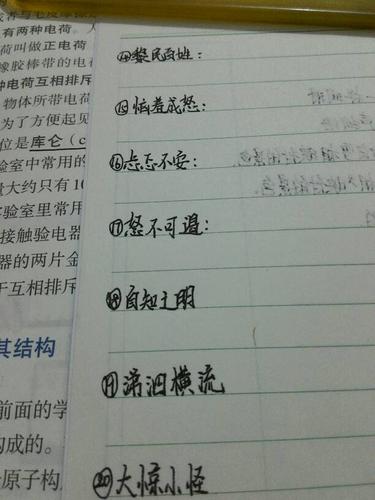 有两种电荷。人
荷叫做正电荷
橡胶棒带的电
种电荷互相排斥
物体所带电荷
为了方便起见
位是库仑（c
验室中常用的
量大约只有10
实验室里常用
接触验电器
器的两片金
于互相排斥
其结构
前面的学
构成的。
原子构
⑭黎民百姓：
⑮恼羞成怒：
⑯忐忑不安：
⑰怒不可遏：
⑱自知之明
⑲涕泗横流
⑳大惊小怪